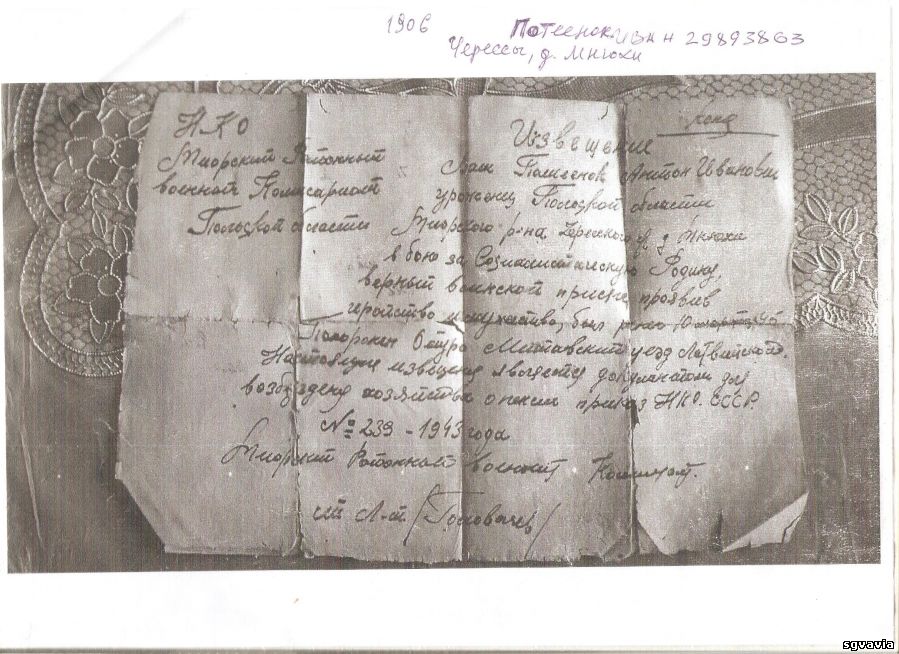 1906
Потеенок Иван 29893863
Черессы, д. Мнюхи
НКО
Миорский Районный
военный Комисариат
Полоцкой области
копия
Извещение
Ваш Потеенок Антон Иванович
уроженец Полоцкой области
Миорского р-на д. Мнюхи
в бою за Социалистическую Родину,
верный воинской присяге, проявив
геройство и мужество, был
Похоронен Митавский уезд
Настоящее извещение является документом для
возбуждения хозяйства о пенсии приказ НКО. СССР.
№ 239 - 1943 года
Миорский Районный военный Комиссар.
ст Л-т /Головачев/
sgvavia